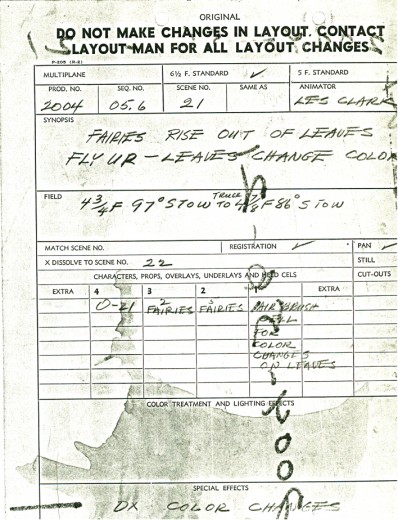 ORIGINAL
DO NOT MAKE CHANGES IN LAYOUT. CONTACT
LAYOUT MAN FOR ALL LAYOUT CHANGES
F-208 (R-2)
MULTIPLANE 6½ F. STANDARD ✓ 5 F. STANDARD
PROD. NO. SEQ. NO. SCENE NO. SAME AS ANIMATOR
2004 05.6 21 LES CLARK
SYNOPSIS
FAIRIES RISE OUT OF LEAVES
FLY UP - LEAVES CHANGE COLOR
FIELD
TRUCK
4 3/4 F 97° S TO W TO F 86° S TO W
MATCH SCENE NO. REGISTRATION ✓ PAN ✓
X DISSOLVE TO SCENE NO. 22 STILL
CHARACTERS, PROPS, OVERLAYS, UNDERLAYS AND HELD CELS CUT-OUTS
EXTRA 4 3 2 1 EXTRA
O-21 2 FAIRIES 3 FAIRIES AIR BRUSH
CELL
FOR
COLOR
CHANGES
ON LEAVES
COLOR TREATMENT AND LIGHTING EFFECTS
SPECIAL EFFECTS
DX COLOR CHANGES